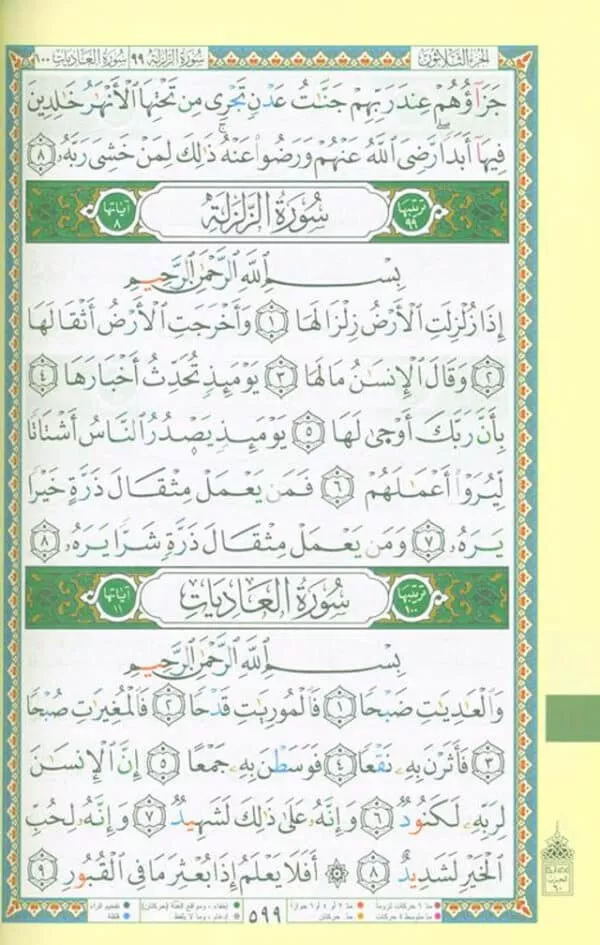 الجزء الثلاثون
سورة الزلزلة ٩٩ سورة العاديات ١٠٠
جَزَآؤُهُمْ عِندَ رَبِّهِمْ جَنَّٰتُ عَدْنٍ تَجْرِى مِن تَحْتِهَا ٱلْأَنْهَٰرُ خَٰلِدِينَ
فِيهَآ أَبَدًا ۖ رَّضِىَ ٱللَّهُ عَنْهُمْ وَرَضُوا۟ عَنْهُ ۚ ذَٰلِكَ لِمَنْ خَشِىَ رَبَّهُۥ ٨
ترتيبها ٩٩ سُورَةُ الزَّلْزَلَةِ آياتها ٨
بِسْمِ ٱللَّهِ ٱلرَّحْمَٰنِ ٱلرَّحِيمِ
إِذَا زُلْزِلَتِ ٱلْأَرْضُ زِلْزَالَهَا ١ وَأَخْرَجَتِ ٱلْأَرْضُ أَثْقَالَهَا
٢ وَقَالَ ٱلْإِنسَٰنُ مَا لَهَا ٣ يَوْمَئِذٍ تُحَدِّثُ أَخْبَارَهَا ٤
بِأَنَّ رَبَّكَ أَوْحَىٰ لَهَا ٥ يَوْمَئِذٍ يَصْدُرُ ٱلنَّاسُ أَشْتَاتًا
لِّيُرَوْا۟ أَعْمَٰلَهُمْ ٦ فَمَن يَعْمَلْ مِثْقَالَ ذَرَّةٍ خَيْرًا
يَرَهُۥ ٧ وَمَن يَعْمَلْ مِثْقَالَ ذَرَّةٍ شَرًّا يَرَهُۥ ٨
ترتيبها ١٠٠ سُورَةُ العَادِيَاتِ آياتها ١١
بِسْمِ ٱللَّهِ ٱلرَّحْمَٰنِ ٱلرَّحِيمِ
وَٱلْعَٰدِيَٰتِ ضَبْحًا ١ فَٱلْمُورِيَٰتِ قَدْحًا ٢ فَٱلْمُغِيرَٰتِ صُبْحًا
٣ فَأَثَرْنَ بِهِۦ نَقْعًا ٤ فَوَسَطْنَ بِهِۦ جَمْعًا ٥ إِنَّ ٱلْإِنسَٰنَ
لِرَبِّهِۦ لَكَنُودٌ ٦ وَإِنَّهُۥ عَلَىٰ ذَٰلِكَ لَشَهِيدٌ ٧ وَإِنَّهُۥ لِحُبِّ
ٱلْخَيْرِ لَشَدِيدٌ ٨ ۞ أَفَلَا يَعْلَمُ إِذَا بُعْثِرَ مَا فِى ٱلْقُبُورِ ٩
٥٩٩